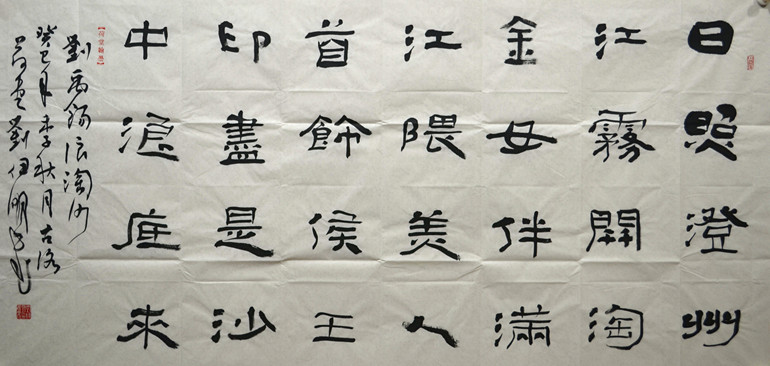 日照澄州
江霧開淘
金女伴滿
江隈美人
首飾侯王
印盡是沙
中浪底來
劉禹錫浪淘沙
癸巳年季秋月古洛
劉伊明